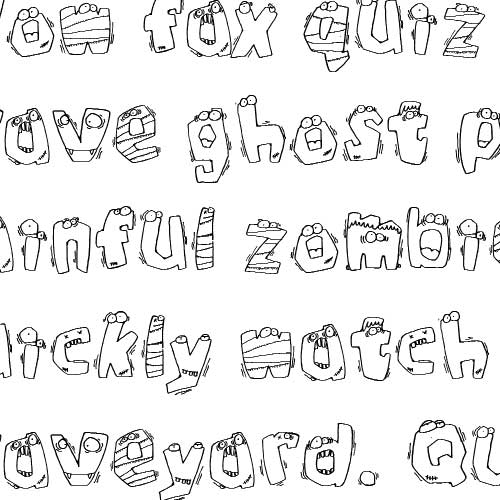 ow fox quiz
ave ghost p
inful zombie
ickly watch
aveyard. Qu